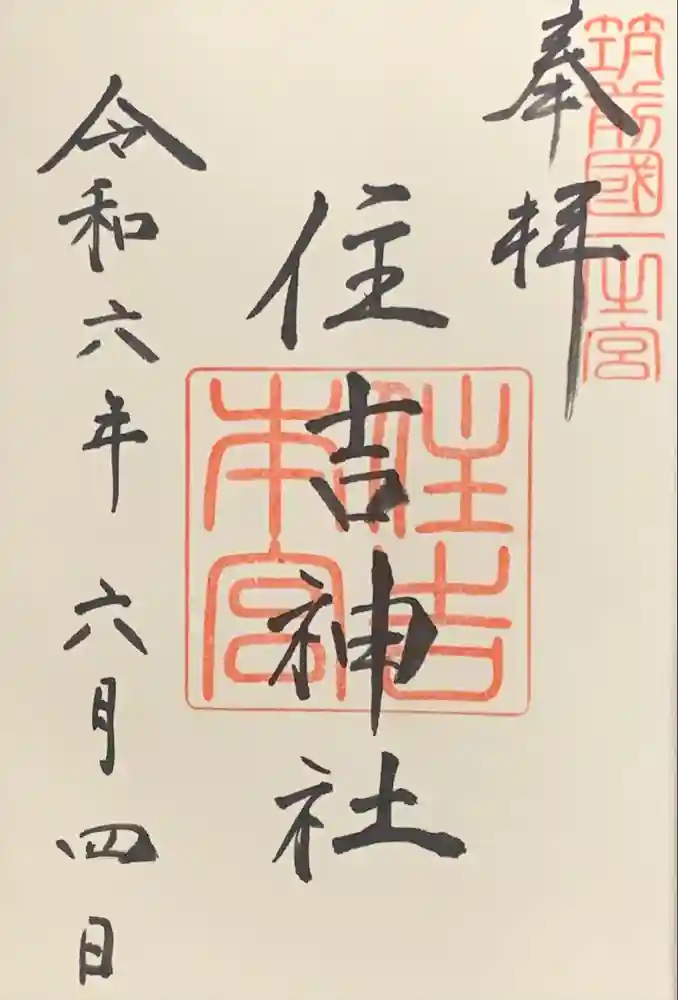 筑前國一之宮
奉拝
住吉神社
住吉
本宮
令和六年 六月四日